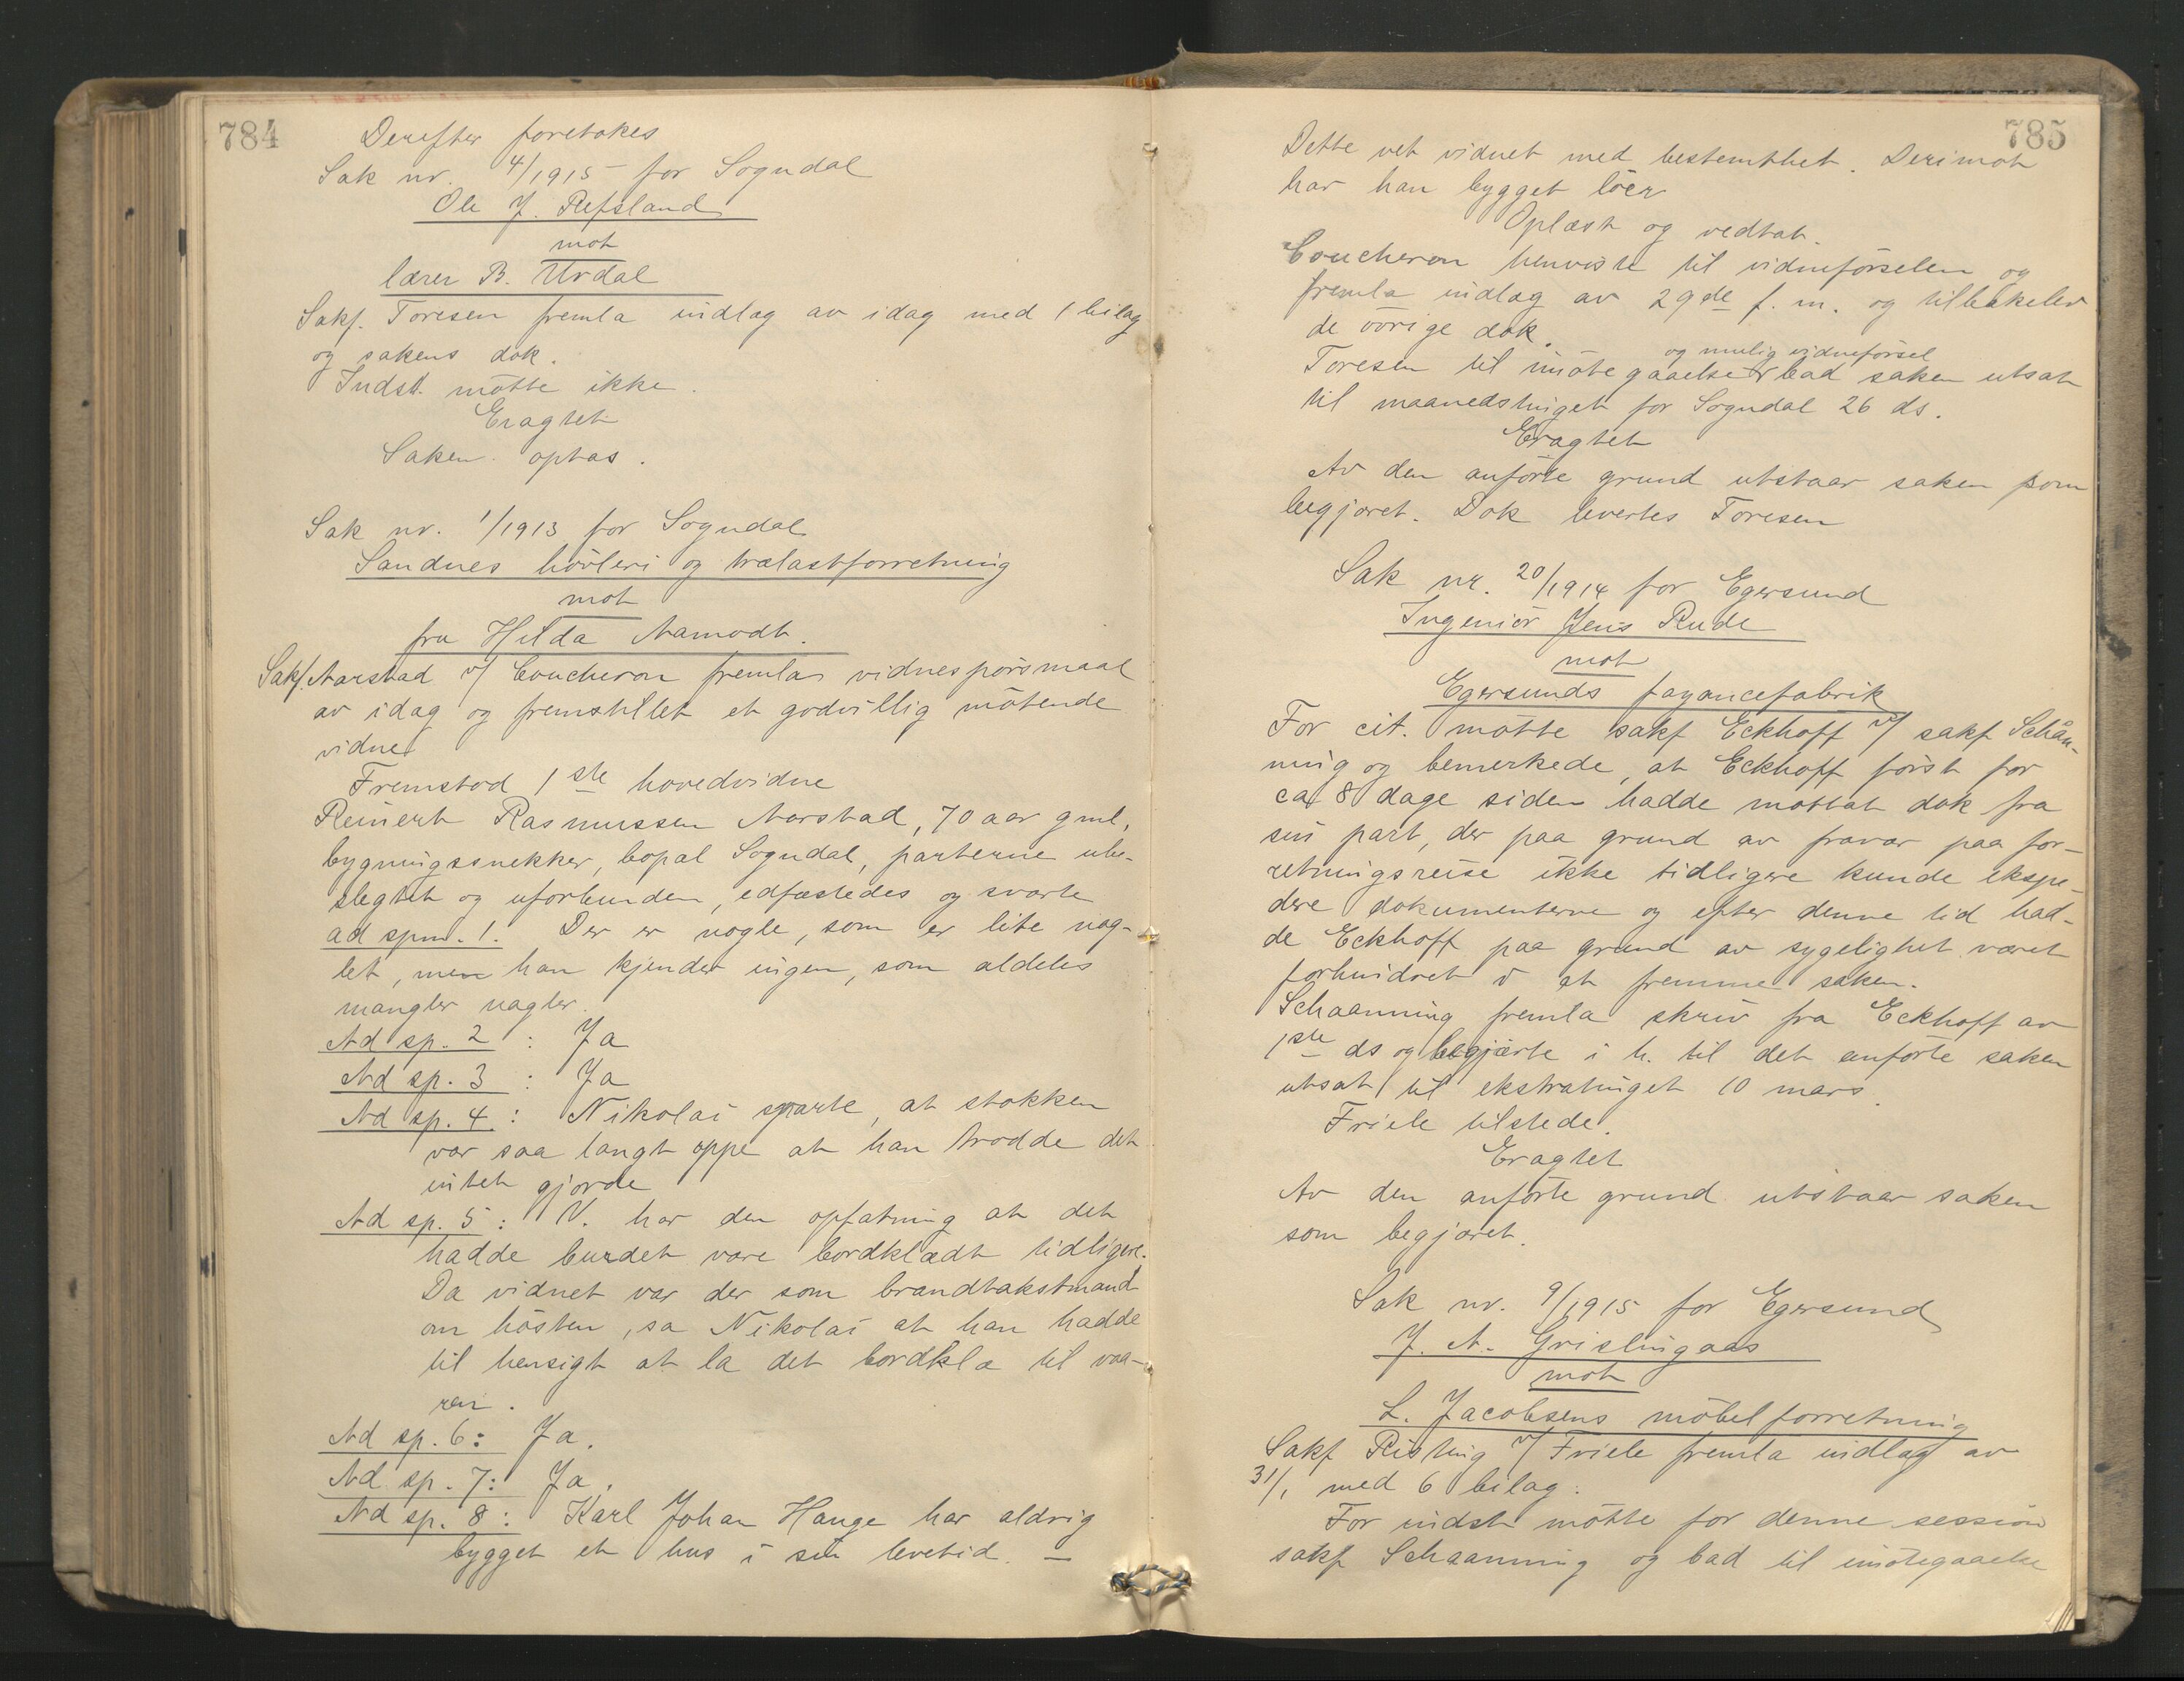 784
Derefter foretokes
Sak nr. 4/1915 for Sogndal
Ole J. Refsland
mot
lærer B. Urdal
Sakf. Toresen fremla indlæg av idag med 1 bilag
og sakens dok.
Indst. mötte ikke.
Eragtet
Saken optas.
Sak nr. 1/1913 for Sogndal
Sandnes hövleri og trælastforretning
mot
fru Hilda Aamodt.
Sakf. Aarstad v/ Coucheron fremla vidnespörsmaal
av idag og fremstillet et godvillig mötende
vidne
Fremstod 1ste hovedvidne
Reinert Rasmussen Aarstad, 70 aar gml,
bygningssnekker, bopæl Sogndal, parterne ube-
slegtet og uforbunden, edfæstedes og svarte
ad spm. 1. Der er nogle, som er lite nag-
let, men han kjender ingen, som aldeles
mangler nagler.
Ad sp. 2 : Ja
Ad sp. 3 : Ja
Ad sp. 4. : Nikolai svarte, at stokken
var saa langt oppe at han trodde det
intet gjorde
Ad sp. 5 : V. har den opfatning at det
hadde burdet være bordklædt tidligere.
Da vidnet var der som brandtakstmand
om hösten, sa Nikolai at han hadde
til hensigt at la det bordklæ til vaa-
ren.
Ad sp. 6 : Ja.
Ad sp. 7 : Ja.
Ad sp. 8 : Karl Johan Hauge har aldrig
bygget et hus i sin levetid. —
785
Dette vet vidnet med bestemthet. Derimot
har han bygget löer
Oplæst og vedtat.
Coucheron henviste til vidneförselen og
fremla indlæg av 29de f. m. og tilbakelev
de övrige dok.
og mulig vidneförsel
Toresen til imötegaaelse bad saken utsat
til maanedstinget for Sogndal 26 ds.
Eragtet
Av den anförte grund utstaar saken som
begjæret. Dok levertes Toresen
Sak nr. 20/1914 for Egersund
Ingeniör Jens Rude
mot
Egersunds fayancefabrik
For cit. mötte sakf Eckhoff v/ sakf Schån-
ning og bemerkede, at Eckhoff först for
ca 8 dage siden hadde mottat dok fra
sin part, der paa grund av fravær paa for-
retningsreise ikke tidligere kunde ekspe-
dere dokumenterne og efter denne tid had-
de Eckhoff paa grund av sygelighet været
forhindret v at fremme saken.
Schaanning fremla skriv fra Eckhoff av
1ste ds og begjærte i h. til det anförte saken
utsat til ekstratinget 10 mars.
Friele tilstede.
Eragtet
Av den anförte grund utstaar saken
som begjæret.
Sak nr. 9/1915 for Egersund
J. A. Grislingaas
mot
L. Jacobsens möbelforretning
Sakf Risting v/ Friele fremla indlæg av
31/1 med 6 bilag.
For indst mötte for denne session
sakf Schaanning og bad til imötegaaelse